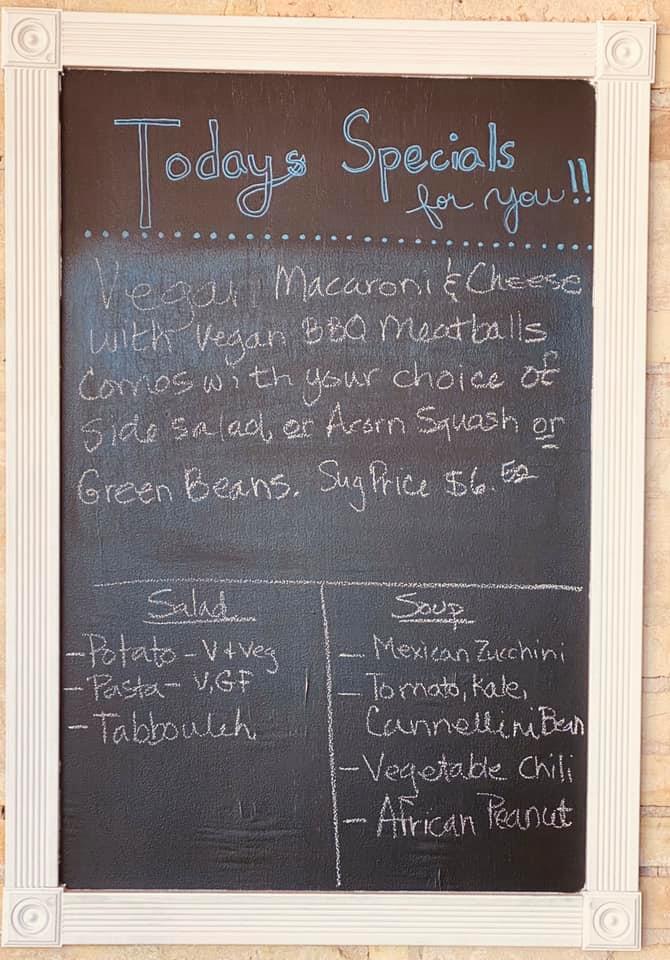 Todays Specials
for you!!
Vegan Macaroni & Cheese
with Vegan BBQ Meatballs
Comes with your choice of
Side Salad, or Acorn Squash or
Green Beans. Sug Price $6.50
Salad
- Potato - V + Veg
- Pasta - V, GF
- Tabbouleh
Soup
- Mexican Zucchini
- Tomato, Kale,
Cannellini Bean
- Vegetable Chili
- African Peanut